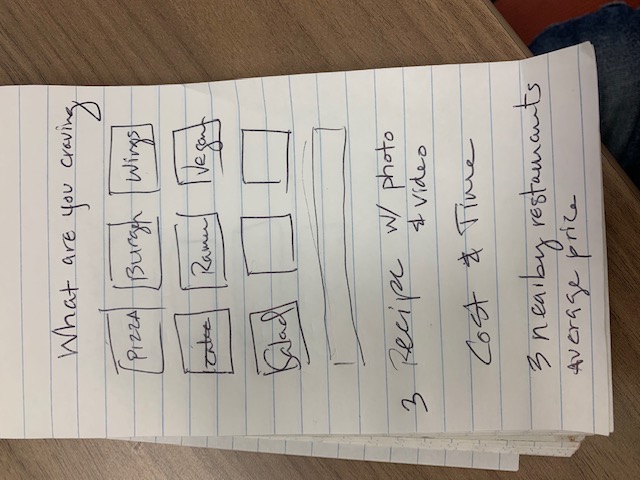 What are you craving
PIZZA Burger Wings
Ramen Vegan
Salad
3 Recipe w/ photo
& video
Cost & Time
3 nearby restaurants
Average price